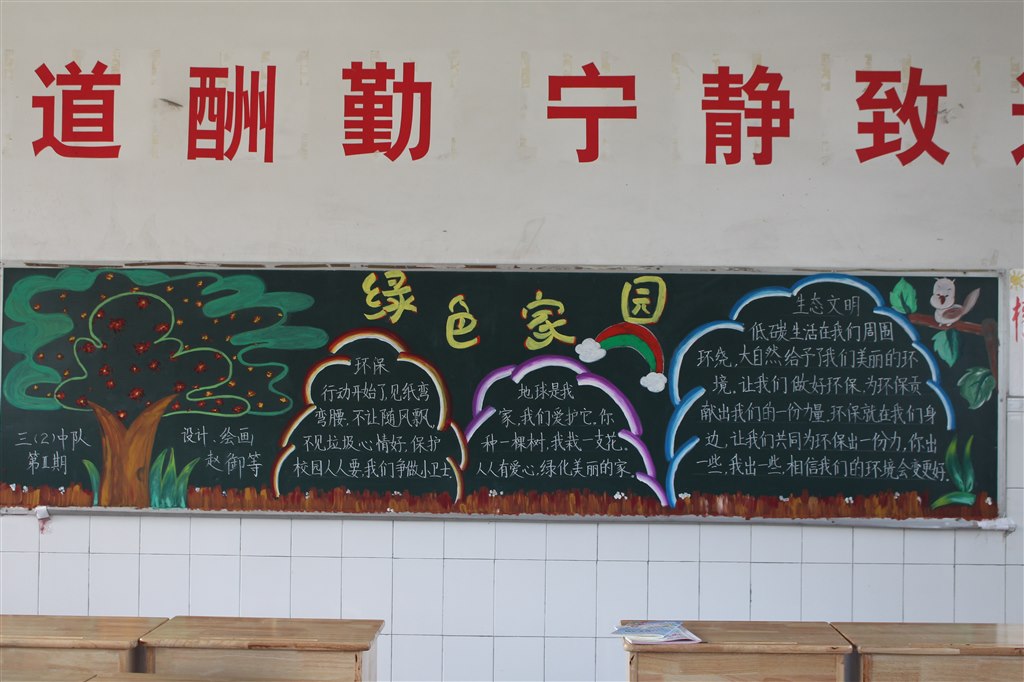 道 酬 勤 宁 静 致
绿色家园
三(2)中队
第Ⅱ期
设计、绘画
赵御等
环保
行动开始了,见纸弯
弯腰,不让随风飘,
不见垃圾心情好,保护
校园人人要,我们争做小卫士,
地球是我
家,我们爱护它,你
种一棵树,我栽一支花。
人人有爱心,绿化美丽的家。
生态文明
低碳生活在我们周围
环绕,大自然给予了我们美丽的环
境。让我们做好环保,为环保贡
献出我们的一份力量,环保就在我们身
边,让我们共同为环保出一份力,你出
一些,我出一些,相信我们的环境会变更好。